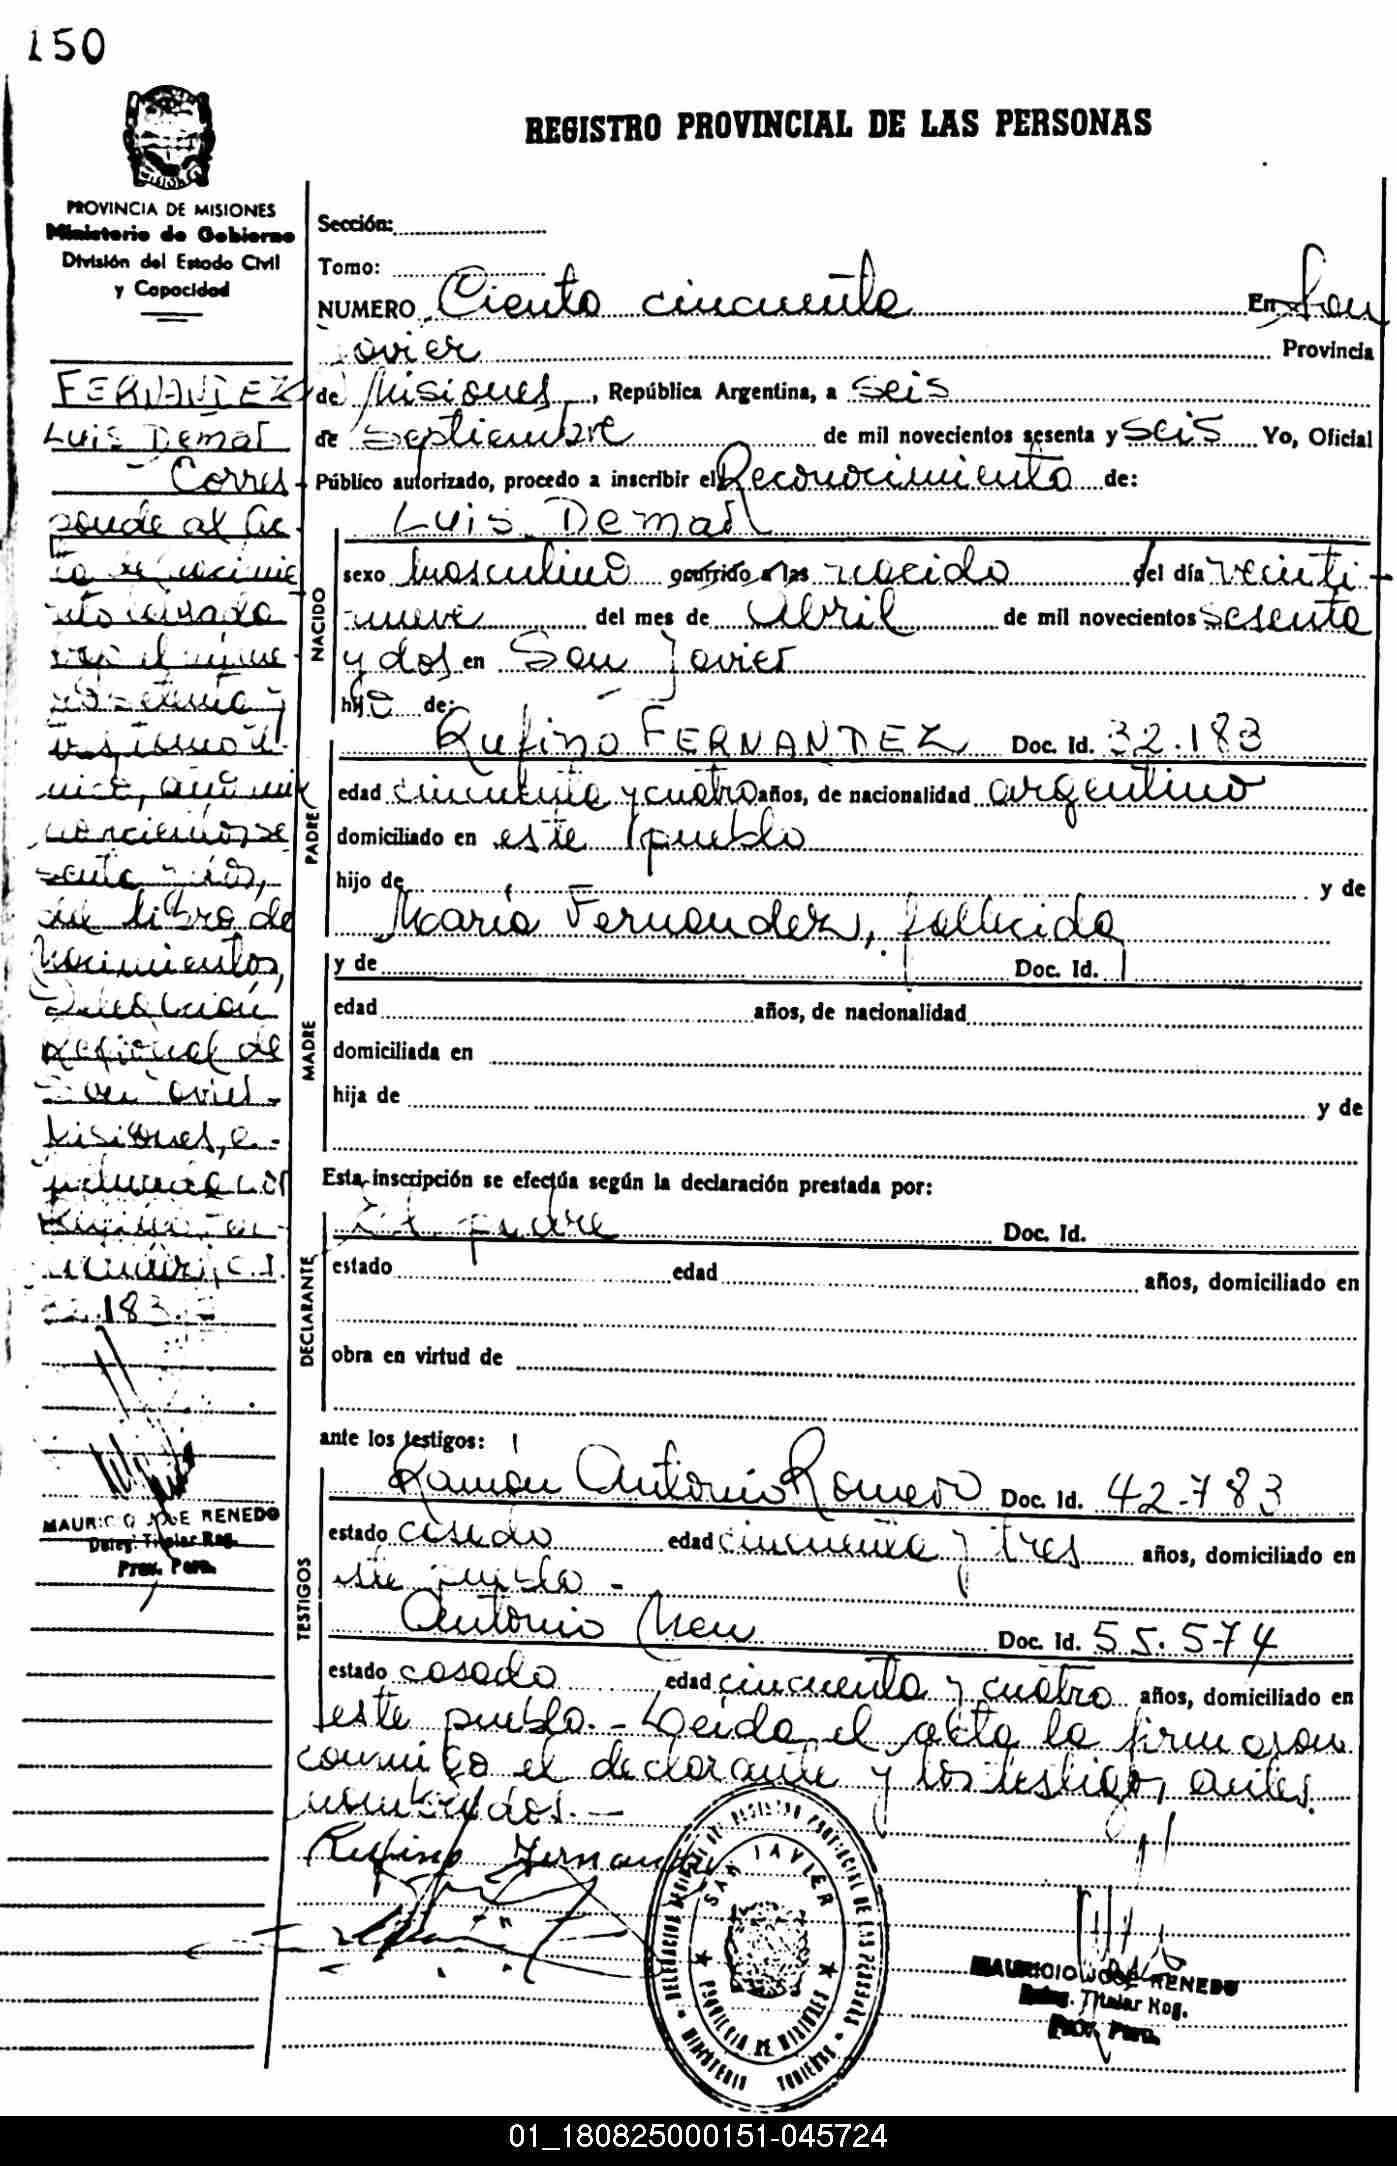 150
REGISTRO PROVINCIAL DE LAS PERSONAS
PROVINCIA DE MISIONES
Ministerio de Gobierno
División del Estado Civil
y Capacidad
FERNANDEZ
Luis Demar
Corres
ponde al Ac-
ta de nacimie
nto labrada
bajo el núme
unico, año mil
novecientos se
senta y dos,
del libro de
Nacimientos,
Delegación
Regional de
San Javier
Misiones,
C.I.
32.183.-
MAURICIO JOSE RENEDO
Deleg. Titular Reg.
Prov. Pers.
Sección:
Tomo:
NUMERO Ciento cincuenta En San
Javier Provincia
de Misiones, República Argentina, a seis
de Septiembre de mil novecientos sesenta y seis Yo, Oficial
Público autorizado, procedo a inscribir el Reconocimiento de:
NACIDO
Luis Demar
sexo masculino ocurrido a las nacido del día veinti-
nueve del mes de Abril de mil novecientos sesenta
y dos en San Javier
hijo de:
PADRE
Rufino FERNANDEZ Doc. Id. 32.183
edad cincuenta y cuatro años, de nacionalidad argentino
domiciliado en este pueblo
hijo de y de
María Fernandez, fallecida
MADRE
y de Doc. Id.
edad años, de nacionalidad
domiciliada en
hija de y de
Esta inscripción se efectúa según la declaración prestada por:
DECLARANTE
El padre Doc. Id.
estado edad años, domiciliado en
obra en virtud de
ante los testigos:
TESTIGOS
Ramón Antonio Romero Doc. Id. 42.783
estado casado edad cincuenta y tres años, domiciliado en
este pueblo -
Antonio Doc. Id. 55.574
estado casado edad cincuenta y cuatro años, domiciliado en
este pueblo.- Leída el acta la firmaron
conmigo el declarante y los testigos antes
nombrados.-
Rufino Fernandez
DELEGACION REGIONAL DEL REGISTRO PROVINCIAL DE LAS PERSONAS
SAN JAVIER
PROVINCIA DE MISIONES
MINISTERIO GOBIERNO
MAURICIO JOSE RENEDO
Deleg. Titular Reg.
Prov. Pers.
01_180825000151-045724